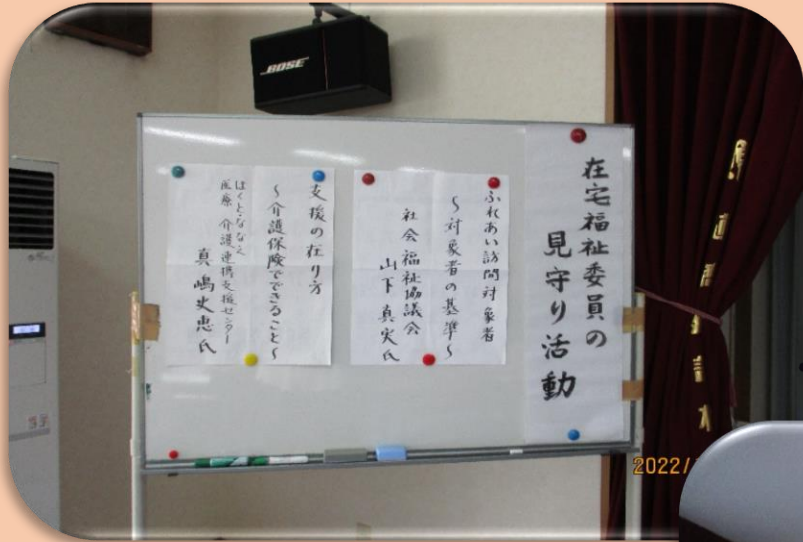 在宅福祉委員の
見守り活動
ふれあい訪問対象者
～対象者の基準～
社会福祉協議会
山下真実氏
支援の在り方
～介護保険でできること～
ほくと・ななえ
医療 介護連携支援センター
真嶋史恵氏
BOSE
2022/